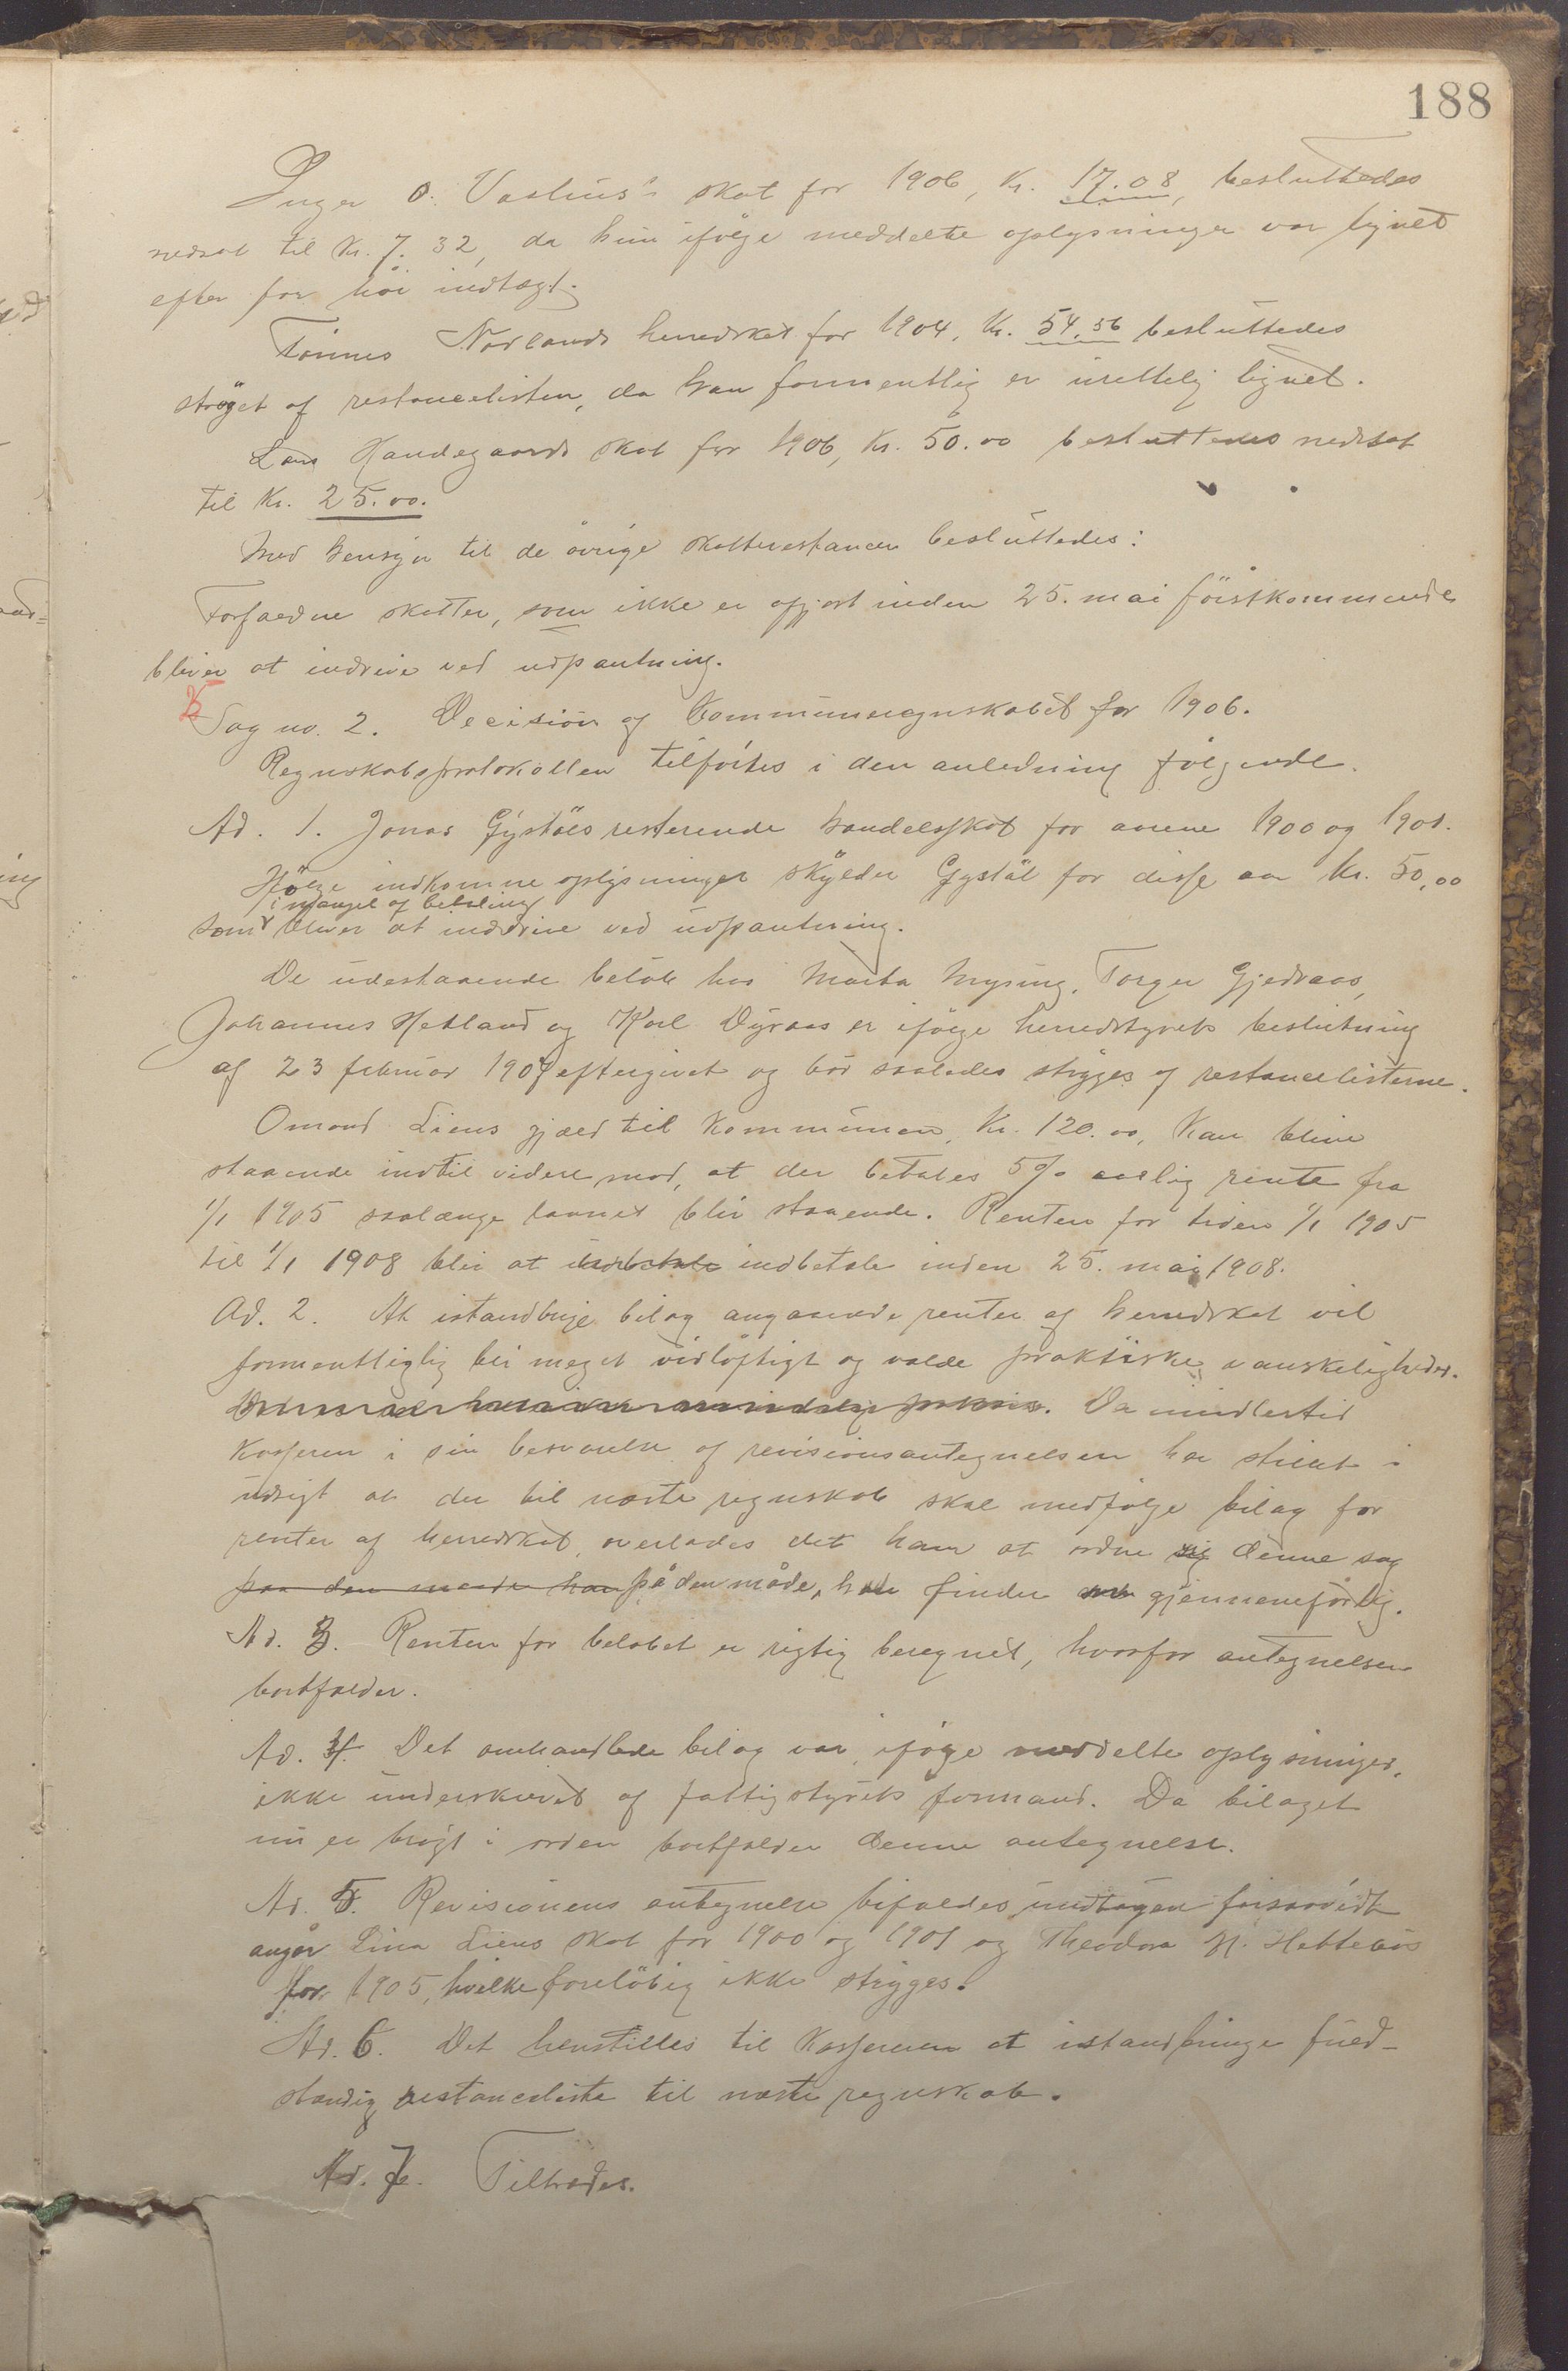 188
Inger O. Vaslius's skat for 1906, Kr. 17.08, besluttedes
nedsat til Kr. 7.32, da hun ifølge meddelte oplysninger var lignet
efter for høi indtægt.
Tønnes Norlands herredskat for 1904, Kr. 54.56 besluttedes
strøget af restancelisten, da han formentlig er urettelig lignet.
Lars Handegaards skat for 1906, Kr. 50.00 besluttedes nedsat
til Kr. 25.00.
Med hensyn til de øvrige skatterestancer besluttedes:
Forfaldne skatter, som ikke er opgjort inden 25. mai førstkommende
bliver at inddrive ved udpantning.
Sag no. 2. Decision af Kommuneregnskabet for 1906.
Regnskabsprotokollen tilførtes i den anledning følgende.
Ad. 1. Jonas Gystøls resterende handelsskat for aarene 1900 og 1901.
Ifølge indkomne oplysninger skylder Gystøl for disse aar Kr. 50,00
i mangel af betaling
som bliver at inddrive ved udpantning.
De udestaaende beløb hos Marta Mysing, Torger Gjedraas,
Johannes Hetland og Karl Dyraas er ifølge herredstyrets beslutning
af 23 februar 1907 eftergivet og bør saaledes stryges af restancelisterne.
Omund Liens gjæld til Kommunen, Kr. 120.00, kan blive
staaende indtil videre mod, at der betales 5% aarlig rente fra
1/1 1905 saalænge laanet blir staaende. Renten for tiden 1/1 1905
til 1/1 1908 blir at indbetale indbetale inden 25. mai 1908.
Ad. 2. At istandbringe bilag angaaende renter af herredskat vil
formentliglig bli meget vidløftigt og volde praktiske vanskeligheder.
Da imidlertid
Kasseren i sin besvarelse af revisionsantegnelsen har stillet i
udsigt at der til næste regnskab skal medfølge bilag for
renter af herredskat, overlades det ham at ordne sig denne sag
paa den maade han på den måde, han finder gjennemførlig.
Ad. 3. Renten for beløbet er rigtig beregnet, hvorfor antegnelsen
bortfalder.
Ad. 4. Det omhandlede bilag var, ifølge meddelte oplysninger,
ikke underskrevet af fattigstyrets formand. Da bilaget
nu er bragt i orden bortfalder denne antegnelse.
Ad. 5. Revisionens antegnelse bifaldes undtagen forsaavidt
angår Lina Liens skat for 1900 og 1901 og Theodora H. Hetlands
for 1905, hvilke foreløbig ikke stryges.
Ad. 6. Det henstilles til Kassereren at istandbringe fuld-
stændig restanceliste til næste regnskab.
Ad. 7. Tiltrædes.